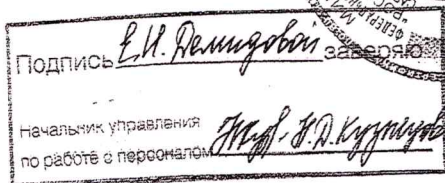 Подпись Е.И. Демидовой заверяю
Начальник управления
по работе с персоналом Н.Д. Кузнецов